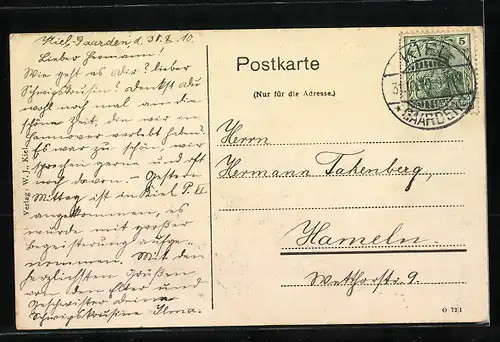 Kiel-Gaarden, d. 31.7.10.
Lieber Hermann!
Wie geht es dir? lieber
denkst du
wohl noch mal an die
schöne Zeit, die wir in
Hannover verlebt haben?
Es war zu schön, wir
sprechen gern und oft
noch davon. – Gestern
Mittag ist in Kiel P. VI
angekommen, es
wurde mit großer
Begeisterung aufge-
nommen. Mit den
herzlichsten Grüßen
von den Eltern und
Geschwister deine
Ilma.
Verlag: W. J., Kiel.
Postkarte
(Nur für die Adresse.)
KIEL
GAARDEN
5
Herrn
Hermann Takenberg,
Hameln.
9.
O 721